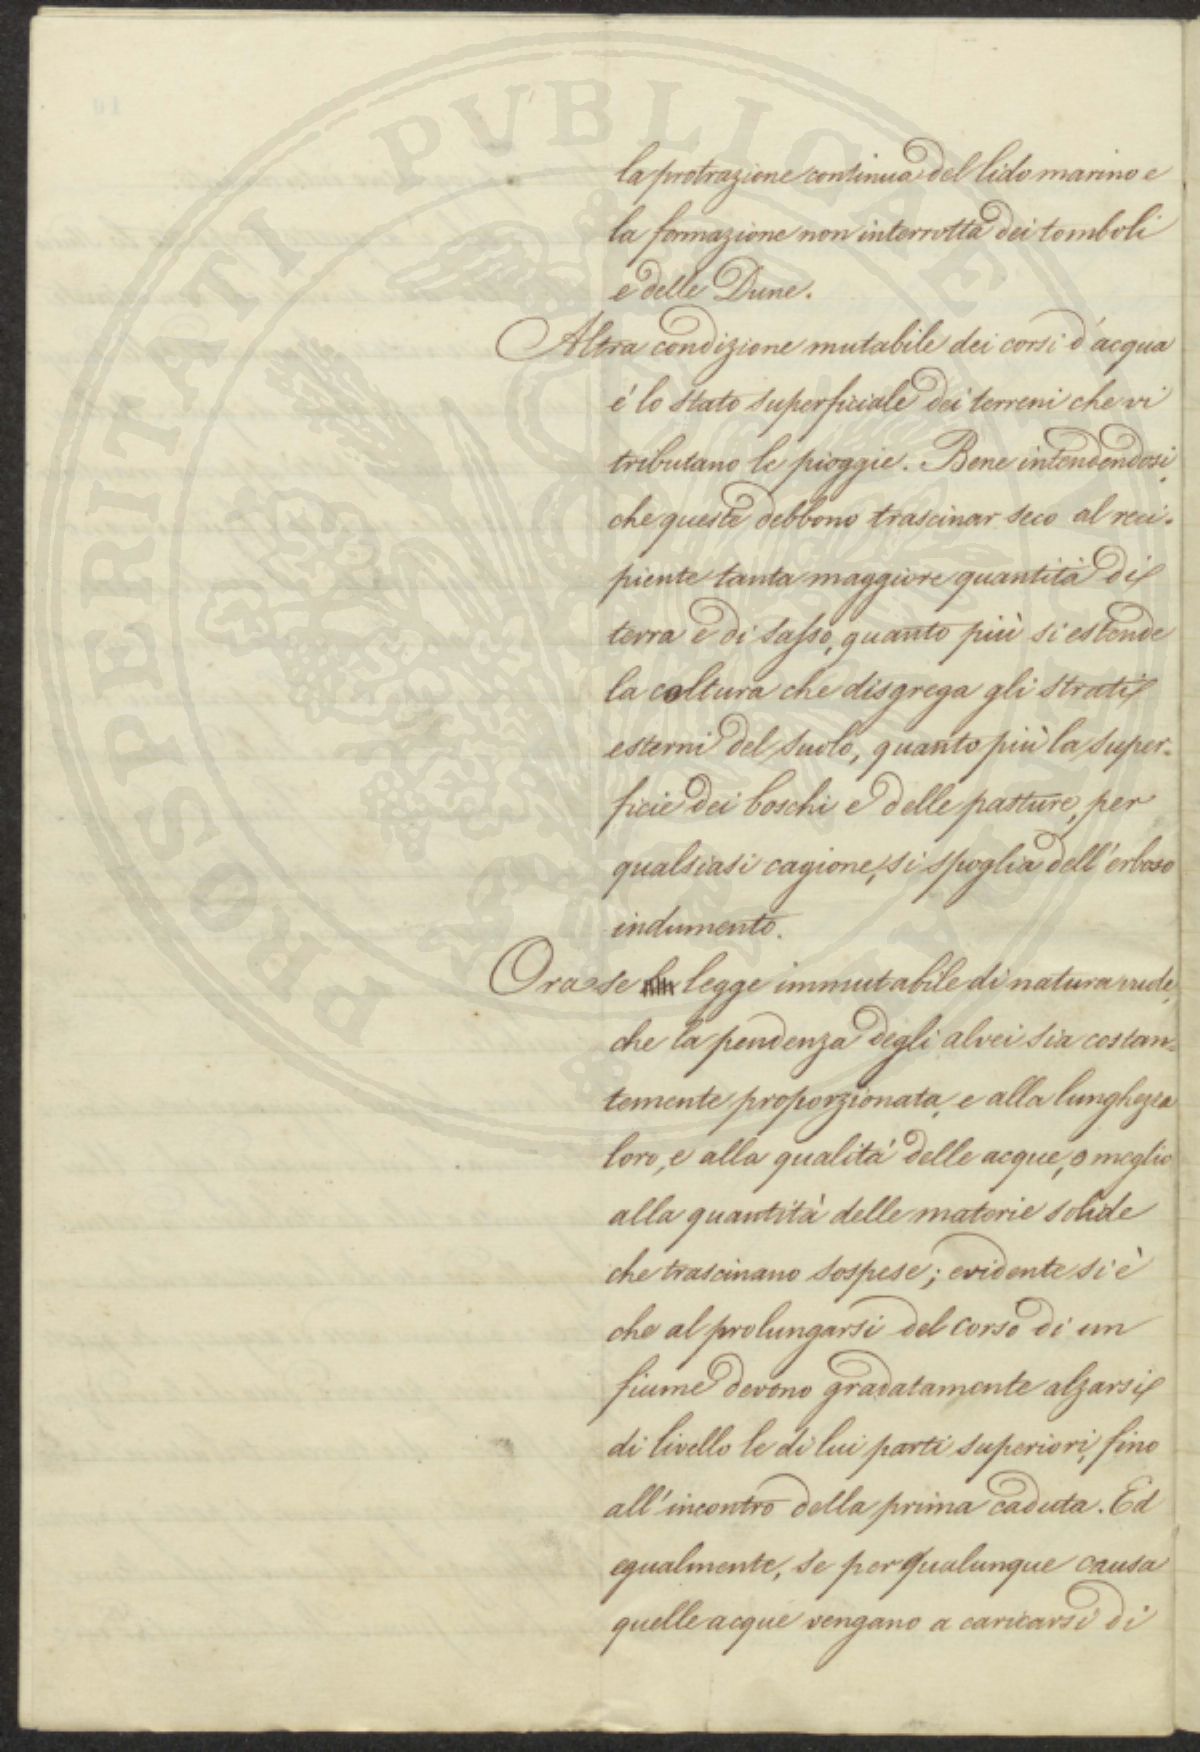 la protrazione continua del lido marino e
la formazione non interrotta dei tomboli
e delle Dune.
Altra condizione mutabile dei corsi d'acqua
é lo stato superficiale dei terreni che vi
tributano le pioggie. Bene intendendosi,
che queste debbono trascinar seco al reci-
piente tanta maggiore quantità di
terra e di sasso, quanto più si estende
la coltura che disgrega gli strati
esterni del suolo, quanto più la super-
ficie dei boschi e delle pasture, per
qualsiasi cagione, si spoglia dell'erboso
indumento.
Ora se legge immutabile di natura vuole,
che la pendenza degli alvei sia costan-
temente proporzionata, e alla lunghezza
loro, e alla qualitá delle acque, o meglio
alla quantità delle materie solide
che trascinano sospese; evidente si è
che al prolungarsi del corso di un
fiume devono gradatamente alzarsi
di livello le di lui parti superiori, fino
all'incontro della prima caduta. Ed
egualmente, se per qualunque causa
quelle acque vengano a caricarsi di
PROSPERITATI PVBLICAE